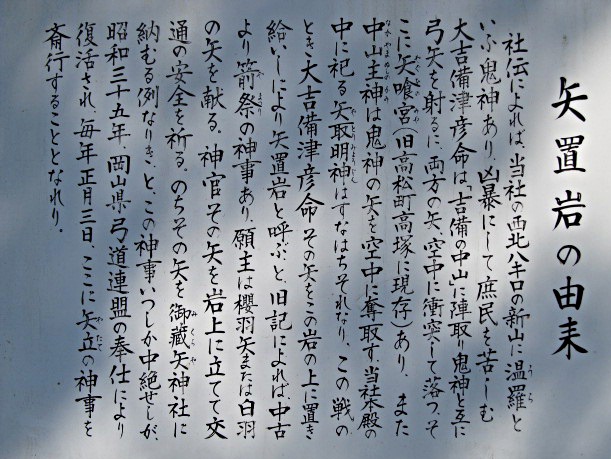 矢置岩の由来
社伝によれば、当社の西北八キロの新山に温羅と
いふ鬼神あり、凶暴にして庶民を苦しむ
大吉備津彦命は「吉備の中山」に陣取り鬼神と互に
弓矢を射るに、両方の矢、空中に衝突して落つ、そ
こに矢喰宮(旧高松町高塚に現存)あり、また
中山主神は鬼神の矢を空中に奪取す、当社本殿の
中に祀る矢取明神はすなはちそれなり、この戦の
とき大吉備津彦命その矢をこの岩の上に置き
給いしにより矢置岩と呼ぶと、旧記によれば、中古
より箭祭の神事あり、願主は櫻羽矢または白羽
の矢を献る、神官その矢を岩上に立てて交
通の安全を祈る。のちその矢を御蔵矢神社に
納むる例なりき、と、この神事いつしか中絶せしが、
昭和三十五年、岡山県弓道連盟の奉仕により
復活され、毎年正月三日、ここに矢立の神事を
斎行することとなれり。